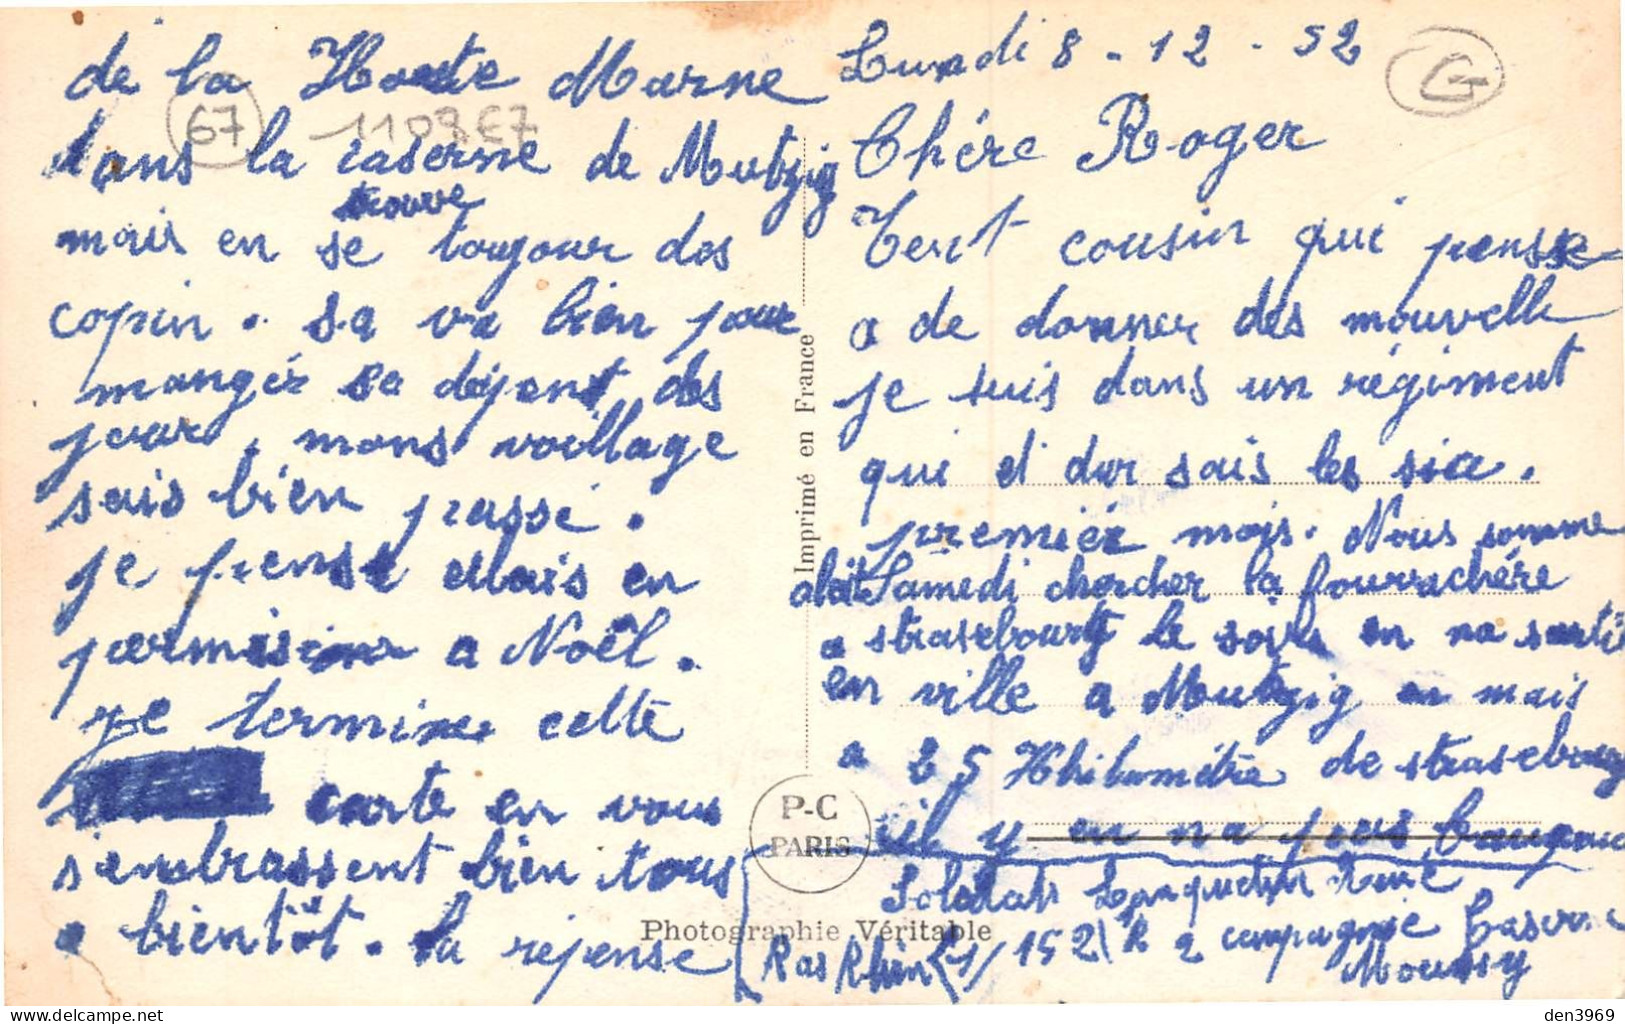 Lundi 8 - 12 - 52
G
Chére Roger
Tent cousin qui pensse
a de donner des nouvelle
je suis dans un régiment
qui et dur sais les six.
premiér mois. Nous somme
alait Samedi chercher la fourrachére
a strasebourg le soir en na sorti
en ville a Mutzig en mais
a 25 Khilumétre de strasebourg
il y en na pas
Soldat Lanquetin René
Bas Rhin 1/152 R 2 compagnie Caserne
Moussy
de la Haute Marne
67
dans la caserne de Mutzig
trouve
mais en se toujour des
copin. sa va bien pour
mangér sa dépent des
jour, mons voillage
sais bien passé.
je pense allais en
permision a Noêl.
je termine cette
carte en vous
s'enbrassent bien tous
a bientôt. la réponse
Imprimé en France
P-C
PARIS
Photographie Véritable
den3969